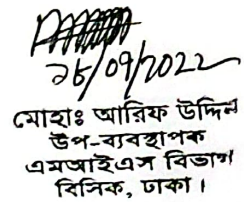 ২৮/09/2022
মোহাঃ আরিফ উদ্দিন
উপ-ব্যবস্থাপক
এমআইএস বিভাগ
বিসিক, ঢাকা।